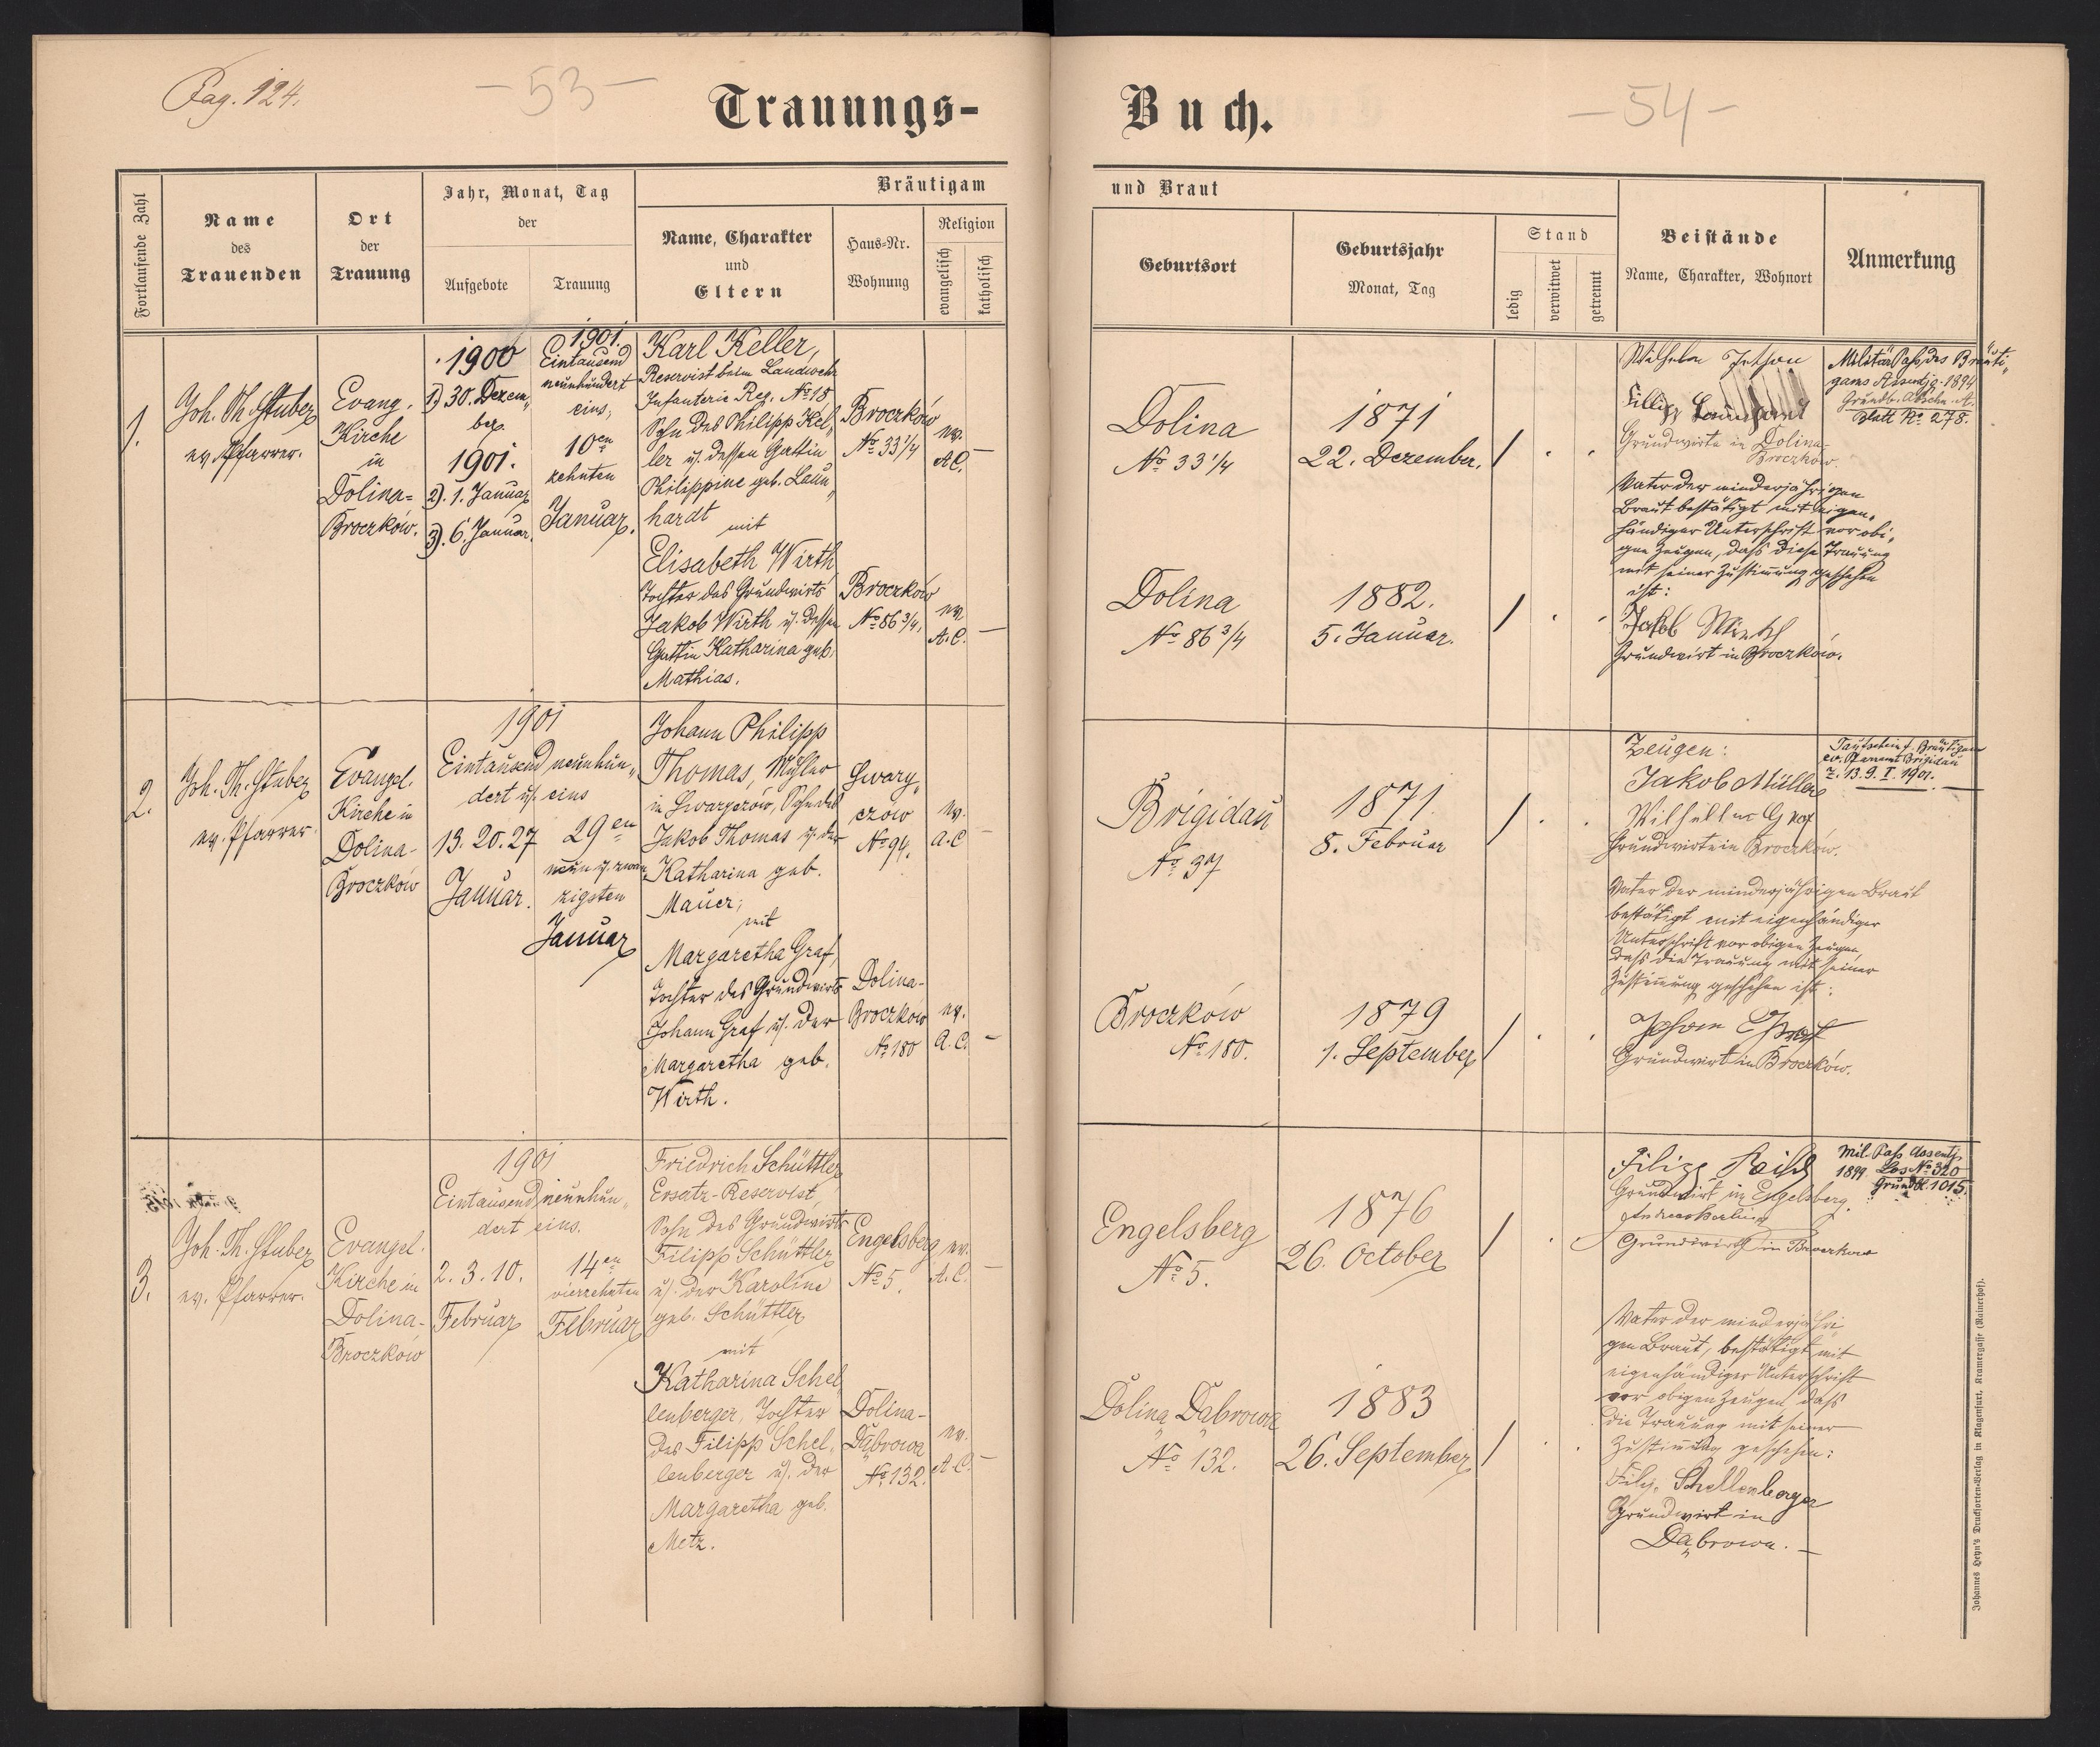 Pag. 124.
- 53 -
Trauungs-
Fortlaufende Zahl
Name
des
Trauenden
Ort
der
Trauung
Jahr, Monat, Tag
der
Aufgebote
Trauung
Bräutigam
Name, Charakter
und
Eltern
Haus-Nr.
Wohnung
Religion
evangelisch
katholisch
1.
Joh. Th. Stuber
ev. Pfarrer.
Evang.
Kirche
in
Dolina-
Broczków.
1900
1) 30. Dezem„
ber.
1901.
2). 1. Januar
3). 6. Januar.
1901.
Eintausend
neunhundert
eins,
10en
zehnten
Januar.
Karl Keller,
Reservist beim Landwehr
Infanterie Reg. No 18
Sohn des Philipp Kel„
ler u. dessen Gattin
Philippine geb. Laun„
hardt
mit
Elisabeth Wirth
Tochter des Grundwirts
Jakob Wirth u. dessen
Gattin Katharina geb.
Mathias.
Broczków
No 33 1/4
Broczków
No 86 3/4.
ev.
A.C. —
ev.
A.C. —
2.
Joh. Th. Stuber
ev. Pfarrer
Evangel.
Kirche in
Dolina-
Broczków
1901
Eintausend neunhun„
dert u. eins
13. 20. 27
Januar.
29en
neun u. zwan„
zigsten
Januar
Johann Philipp
Thomas, Müller
in Swaryczów, Sohn des
Jakob Thomas u. der
Katharina geb.
Mauer;
mit
Margaretha Graf,
Tochter des Grundwirts
Johann Graf u. der
Margaretha geb.
Wirth.
Swary„
czów
No 94.
Dolina-
Broczków
No 180
ev.
A.C —
ev.
A.C. —
3.
Joh. Th. Stuber
ev. Pfarrer.
Evangel.
Kirche in
Dolina-
Broczków
1901
Eintausend neunhun„
dert eins.
2. 3. 10.
Februar
14en
vierzehnten
Februar
Friedrich Schüttler
Ersatz-Reservist,
Sohn des Grundwirts
Filipp Schüttler
u. der Karoline
geb. Schüttler
mit
Katharina Schel„
lenberger, Tochter
des Filipp Schel„
lenberger u. der
Margaretha geb.
Metz.
Engelsberg
No 5.
Dolina-
Dąbrowa
No 132.
ev.
A.C. —
ev.
A.C. —
Buch.
- 54 -
und Braut
Geburtsort
Geburtsjahr
Monat, Tag
Stand
ledig
verwitwet
getrennt
Beistände
Name, Charakter, Wohnort
Anmerkung
Dolina
No 33 1/4
1871
22. Dezember.
Dolina
No 86 3/4
1882.
5. Januar.
Wilhelm
Grundwirte in Dolina-
Broczków.
Vater der minderjährigen
Braut bestätigt mit eigen„
händiger Unterschrift vor obi„
gen Zeugen, dass diese Trauung
mit seiner Zustimmung geschehen
ist:
Jakob Wirth
Grundwirt in Broczków.
Militär Paß des Bräuti„
gams Assentjg. 1894
Blatt No. 278.
Brigidau
No 37
1871
8. Februar
Broczków
No 180.
1879
1. September
Zeugen:
Jakob Müller
Wilhelm Graf
Grundwirte in Broczków.
Vater der minderjährigen Braut
bestätigt mit eigenhändiger
Unterschrift vor obigen Zeugen
dass die Trauung mit seiner
Zustimmung geschehen ist:
Johan Graf
Grundwirt in Broczków.
Taufschein f. Bräutigam
ev. Pfarramt Brigidau
Z. 13. 9. I. 1901.
Engelsberg
No 5.
1876
26. October
Dolina Dąbrowa
No 132.
1883
26. September
Filipp
Grundwirt in Engelsberg.
Grundwirth in Broczkow
Vater der minderjähri„
gen Braut, bestätigt mit
eigenhändiger Unterschrift
vor obigen Zeugen, dass
die Trauung mit seiner
Zustimmung geschehen:
Filip Schellenberger
Grundwirt in
Dąbrowa. —
Mil. Paß Assentj.
1899 Los No 320
Grundbl. 1015.
Johannes Heyn's Drucksorten-Verlag in Klagenfurt, Kramergasse (Rainerhof).